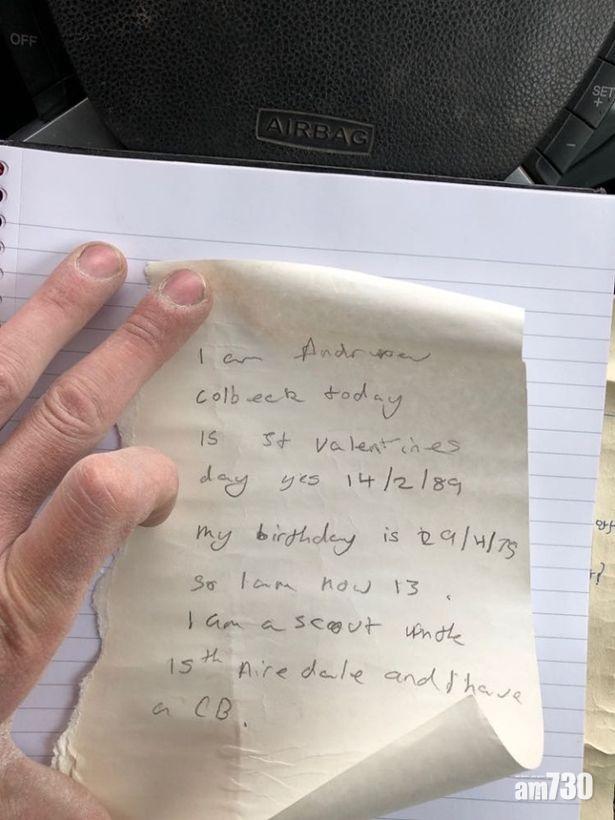 OFF
SET
+
AIRBAG
I am Andrew
Colbeck today
is st valentines
day yes 14/2/89
my birthday is 29/4/75
so I am now 13.
I am a scout
15th Airedale and I have
a CB.
am730